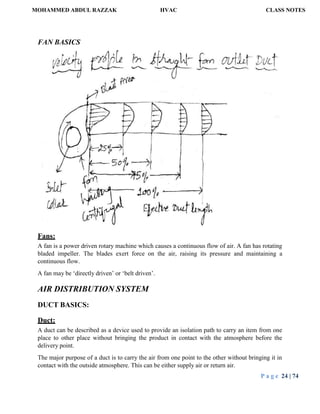 MOHAMMED ABDUL RAZZAK HVAC CLASS NOTES
FAN BASICS
velocity profile in straight fan outlet Duct
Blast Area
25%
50%
75%
100%
Inlet
Collar
fan
Housing
Centrifugal
Effective Duct length
Fans:
A fan is a power driven rotary machine which causes a continuous flow of air. A fan has rotating
bladed impeller. The blades exert force on the air, raising its pressure and maintaining a
continuous flow.
A fan may be ‘directly driven’ or ‘belt driven’.
AIR DISTRIBUTION SYSTEM
DUCT BASICS:
Duct:
A duct can be described as a device used to provide an isolation path to carry an item from one
place to other place without bringing the product in contact with the atmosphere before the
delivery point.
The major purpose of a duct is to carry the air from one point to the other without bringing it in
contact with the outside atmosphere. This can be either supply air or return air.
P a g e 24 | 74